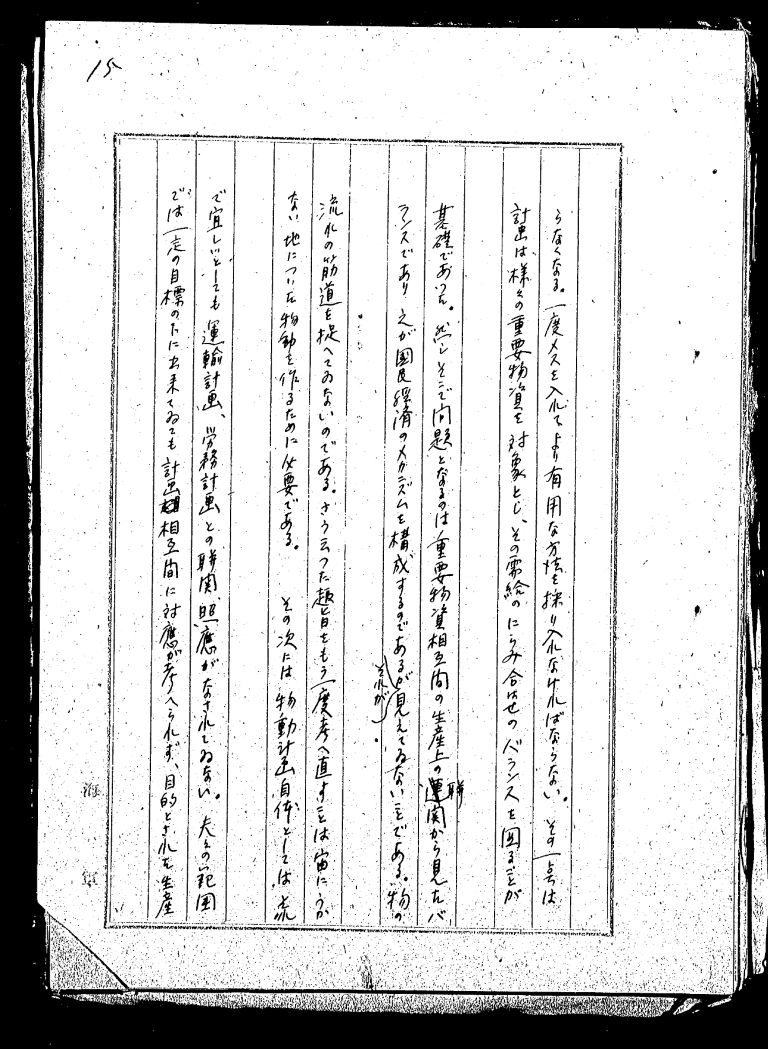 15
らなくなる。一度メスを入れてより有用な方法を採り入れなければならない。その一点は
計画は、様々の重要物資を対象とし、その需給のにらみ合はせのバランスを図ることが
基礎であつた。然しそこで問題となるのは重要物資相互間の生産上の聯関から見たバ
ランスであり之が国民経済のメカニズムを構成するのであるがそれが見えてゐないことである。物の
流れの筋道を捉へてゐないのである。さう云つた趣旨をもう一度考へ直すことは宙にうか
ない地についた物動を作るために必要である。 その次には物動計画自体としては之
で宜しいとしても運輸計画、労務計画との聯関照応がなされてゐない。夫々の範囲
では一定の目標の下に出来てゐても計画相互間に対應が考へられず、目的とされた生産